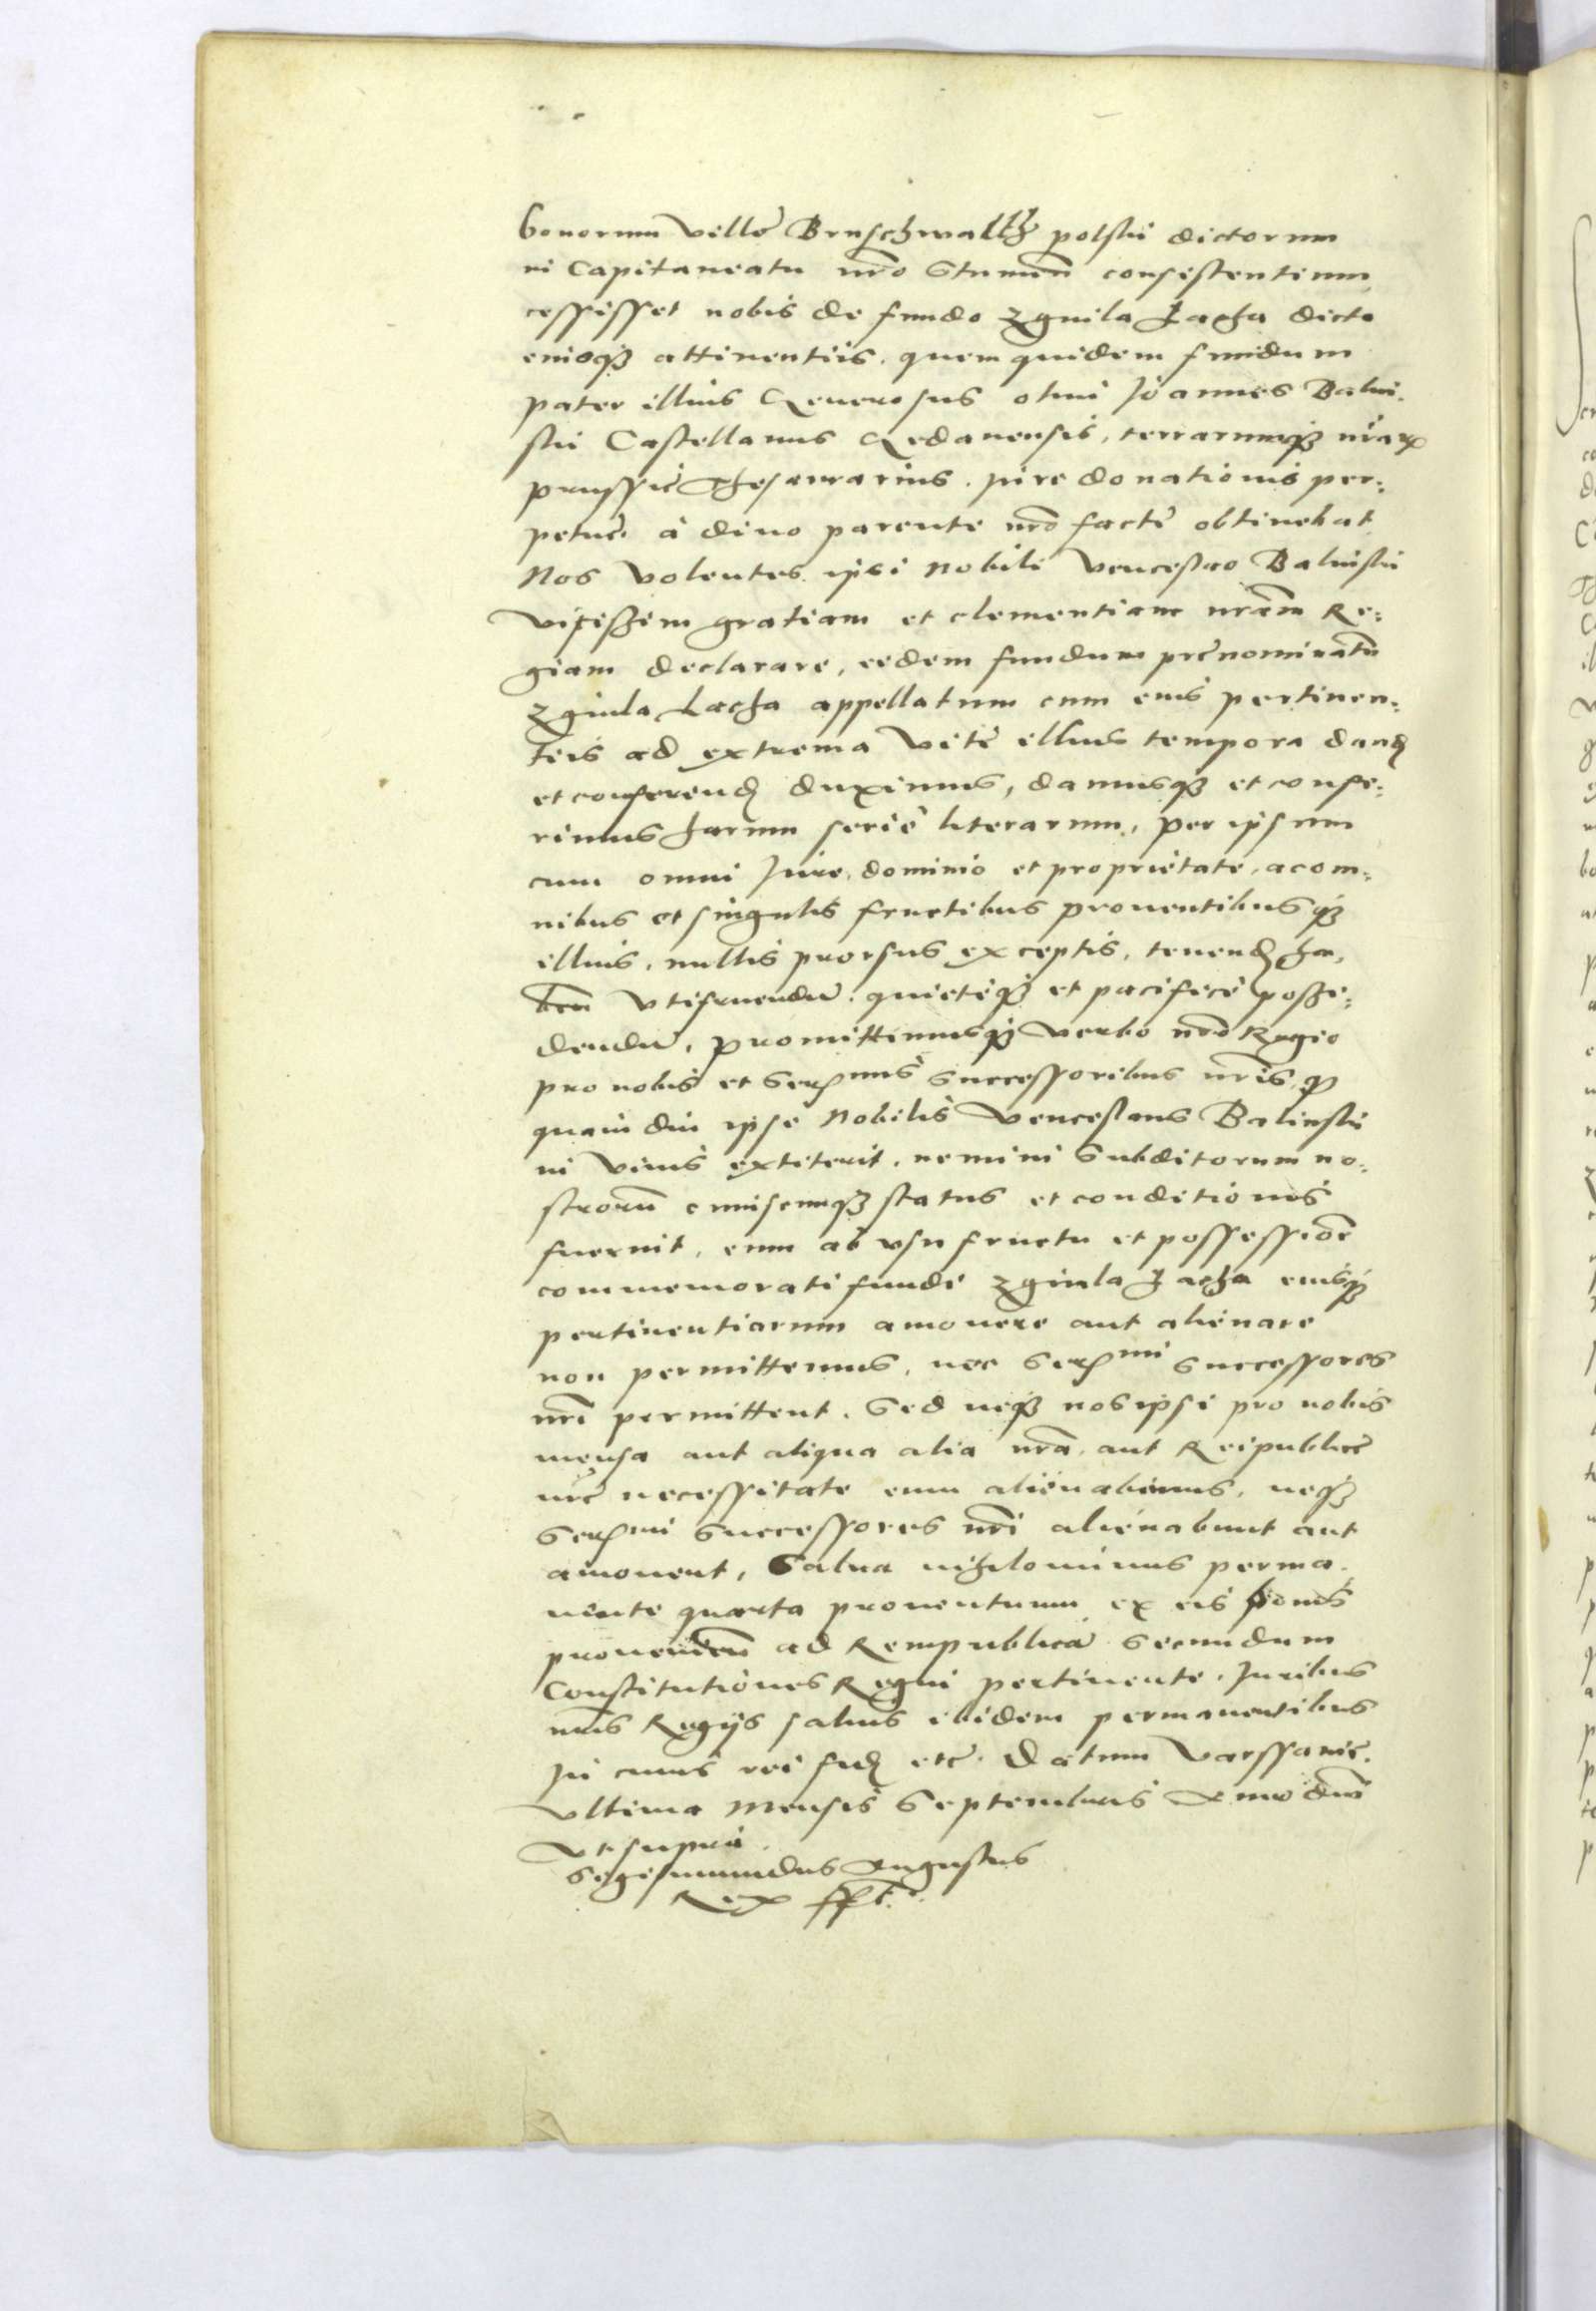 bonorum villę Bruschwalth polski dictorum
in Capitaneatu nrō Stumeñ consistentium
cessisset nobis de fundo Zgnila Lacha dicto
eiusq₃ attinentiis. quem quidem fundum
pater illius Generosus olim Joannes Balin-
ski Castellanus Gedanensis, terrarumq₃ nrāꝝ
prussię Thesaurarius. jure donationis per-
petuę. à diuo parente nrō factę obtinebat
Nos volentes ipsi Nobili Venceslao Balinski
vicissim gratiam et clementiam nrām Re-
giam declarare, eidem fundum prenominatū
Zgnila Lacha appellatum cum eius pertinen-
tiis ad extrema vitę illius tempora dand
et conferend duximus, damusq₃ et confe-
rimus harum serie literarum, per ipsum
cum omni Jure, dominio et proprietate, ac om-
nibus et singulis fructibus prouentibusq₃
illius, nullis prorsus exceptis, tenend ha-
beñ vtifruendū. quietéq₃ et pacificè possi-
dendū. Promittimusq₃ verbo nrō Regio
pro nobis et Serꝰmis Successoribus nrīs, ꝙ
quam diu ipse Nobilis Venceslaus Balinski
in viuis extiterit, nemini Subditorum no-
strorū cuiuscumq₃ status et conditionis
fuerint, eum ab vsufructu et possessiōe
commemorati fundi Zgnila Lacha eiusq₃
pertinentiarum amouere aut alienare
non permittemus, nec Serꝰmi Successores
nrī permittent. Sed neq₃ nos ipsi pro nobis
mensa aut aliqua alia nrā, aut Reipublicę
nrę necessitate eum alienabimus, neq₃
Serꝰmi Successores nrī alienabunt aut
amouent, Salua nihilominus perma-
nente quarta prouentuum ex eis bonis
prouenieñ ad Rempublicā secundum
Constitutiones Regni pertinente. Juribus
nrīs Regijs saluis ibidem permanentibus
In cuius rei fid etc. Datum Varssauię.
Vltima Mensis Septembris Anno dnī
vt supra.
Sigismundus Augustus
Rex sst.